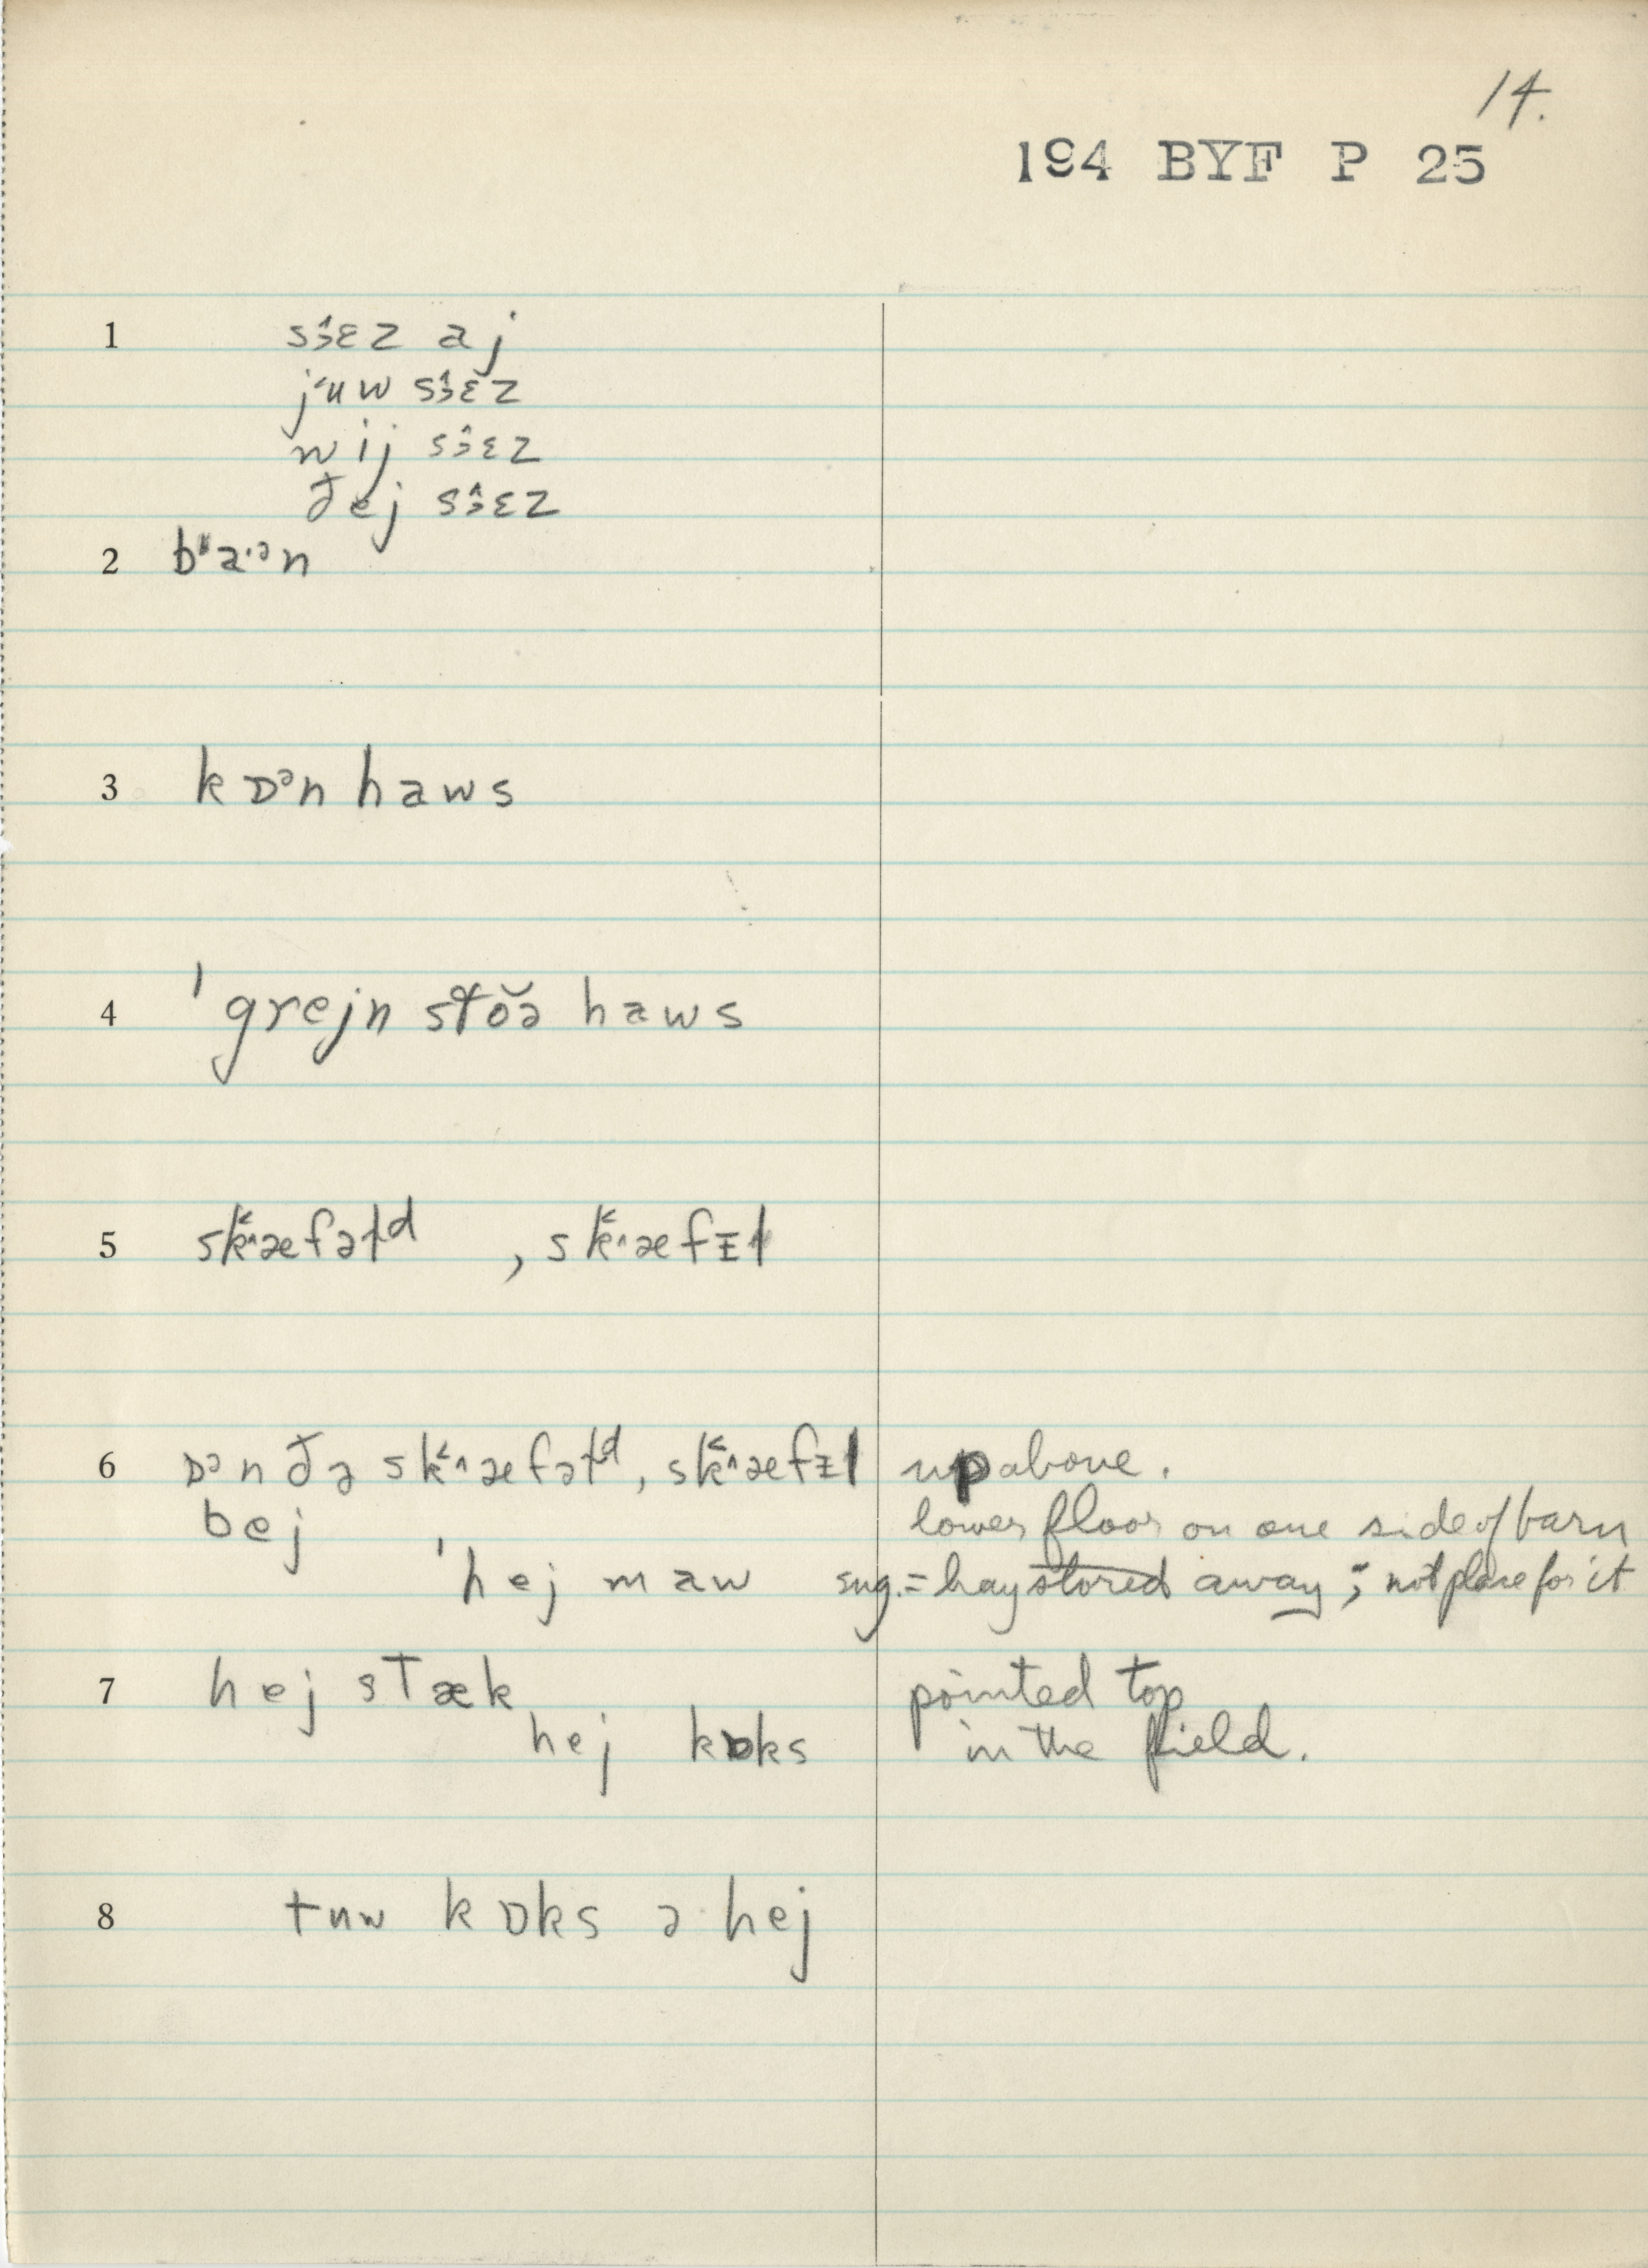 14.
194 BYF P 25
1 sɜ̂ɛz aj
juw sɜ̂ɛz
wij sɜ̂ɛz
đej sɜ̂ɛz
2 ba·ᵊn
3 kɒᵊn haws
4 ˈgrejn stŏə haws
5 sk̬˄æfəłᵈ , sk̬˄æfɪł
6 ɒᵊn đə sk̬˄æfəłᵈ, sk̬˄æfɪł up above.
bej lower floor on one side of barn
ˈhej maw sug. = hay stored away; not place for it
7 hej stæk pointed top
hej kɒks in the field.
8 tuw kɒks ə hej